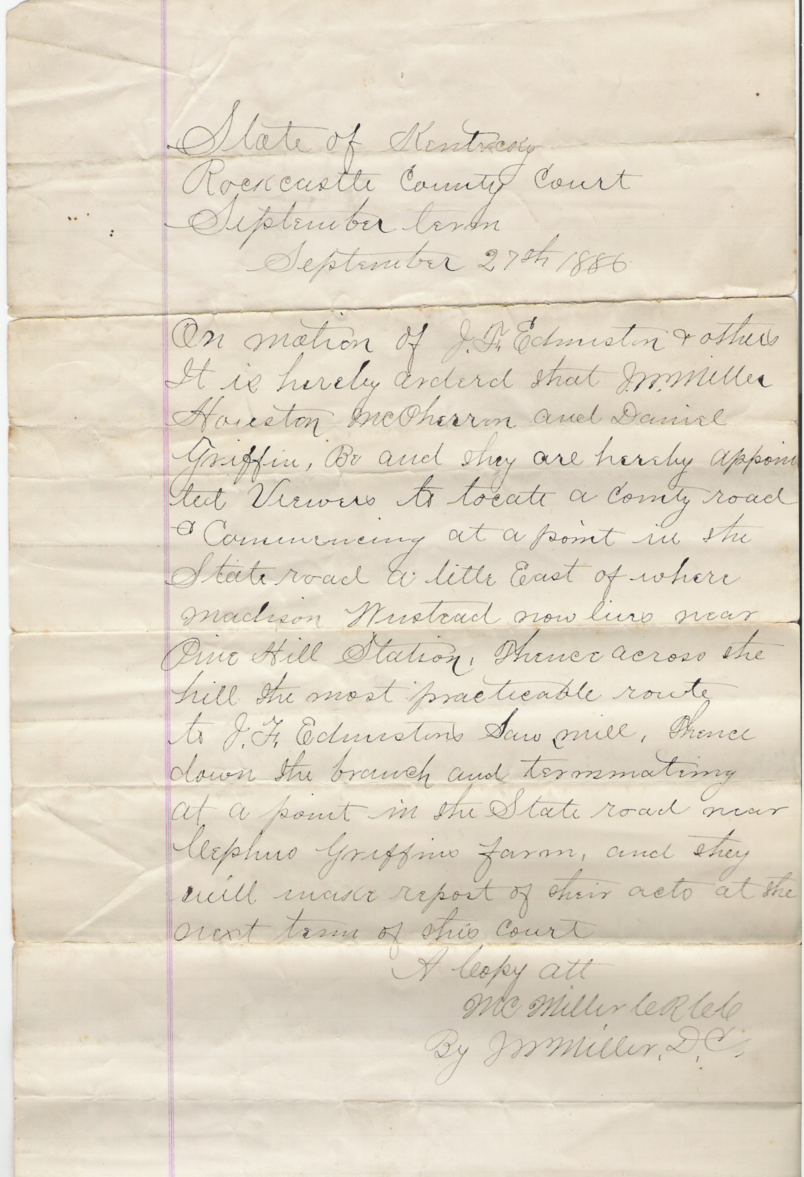 State of Kentucky
Rockcastle County Court
September term
September 27th 1886
On motion of J. F. Edmiston & others
It is hereby orderd that J. M. Miller
Houston McPherron and Daniel
Griffin, Be and they are hereby appoin
ted Viewers to locate a County road
Commencing at a point in the
State road a little East of where
Madison now lives near
Pine Hill Station, Thence across the
hill the most practicable route
to J. F. Edmistons Saw mill, Thence
down the branch and terminating
at a point in the State road near
Cephus Griffins farm, and they
will make report of their acts at the
next term of this Court
A Copy att
MC Miller
By J M Miller, D. C.